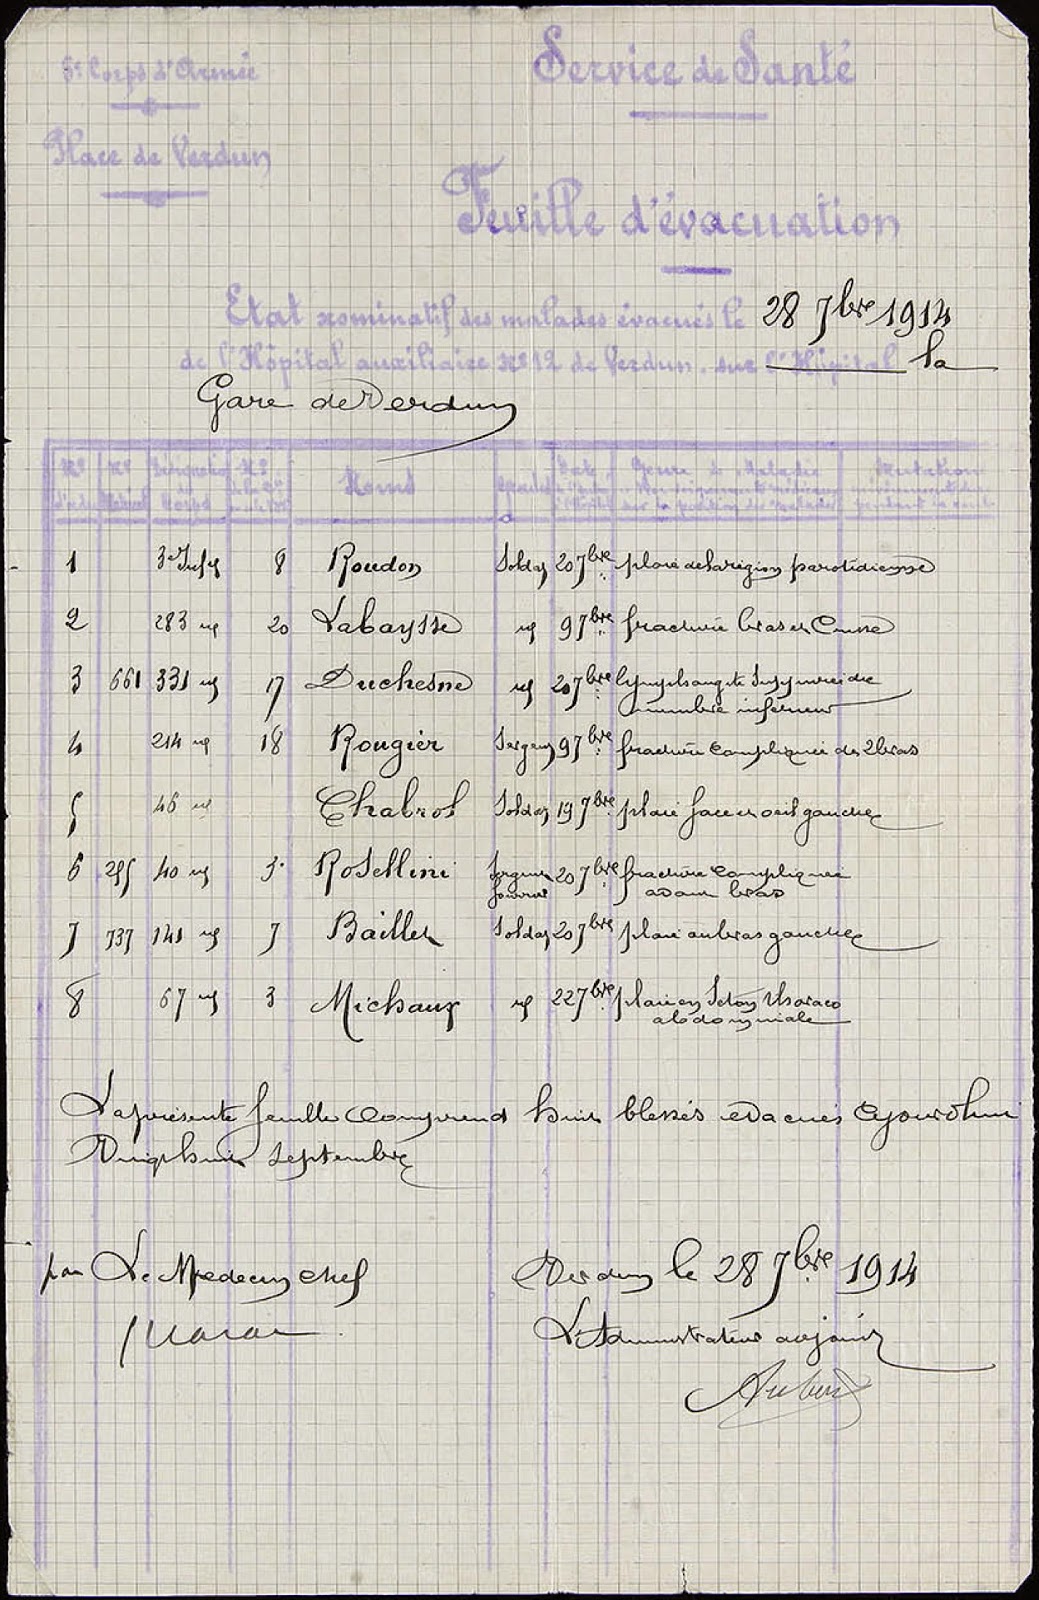 6e Corps d'Armée
Service de Santé
Place de Verdun
Feuille d'évacuation
Etat nominatif des malades évacués le 28 7bre 1914
de l'Hôpital auxiliaire No 12 de Verdun sur l'Hôpital la
Gare de Verdun
No d'ordre No Matricule Désignation des Corps No de la Cie Noms Grades Date Genre de Maladie Mutations
1 3e 8 Roudon Soldat 20 7bre plaie de la région parotidienne
2 283 20 Labaysse 9 7bre fracture bras et Cuisse
3 661 331 17 Duchesne 20 7bre lymphangite du
membre inférieur
4 214 18 Rougier Sergent 9 7bre fracture compliquée des 2 bras
5 46 Chabrol Soldat 19 7bre plaie face et oeil gauche
6 295 40 3 Rosellini Sergent 20 7bre fracture compliquée
fourrier bras
7 737 141 7 Baillet Soldat 20 7bre plaie au bras gauche
8 67 3 Michaux 22 7bre plaie en Séton thoraco
abdominale
La présente feuille comprend huit blessés évacués ce jourd'hui
Vingt huit septembre
par Le Médecin chef
Verdun le 28 7bre 1914
L'Administrateur adjoint